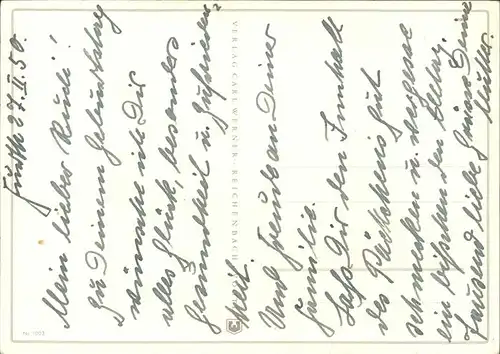 Fürth 27.II.50.
Mein lieber Rudi!
Zu Deinem Geburtstag
wünsche ich Dir
alles Glück, besonders
Gesundheit u. Zufrieden-
heit.
Und Freude an Deiner
Familie.
Laß Dir den Inhalt
des Päckchens gut
schmecken u. vergesse
ein bißchen den Alltag.
Tausend liebe Grüße Deine
Mutter.
VERLAG CARL WERNER · REICHENBACH